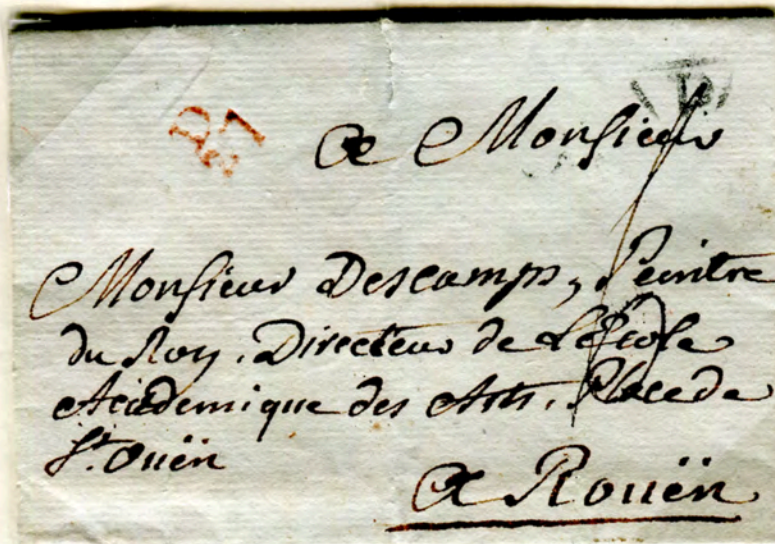 A Monsieur
Monsieur Descamps, Peintre
du Roy, Directeur de L'Ecole
Académique des Arts, Place de
St. Ouën
A Rouën